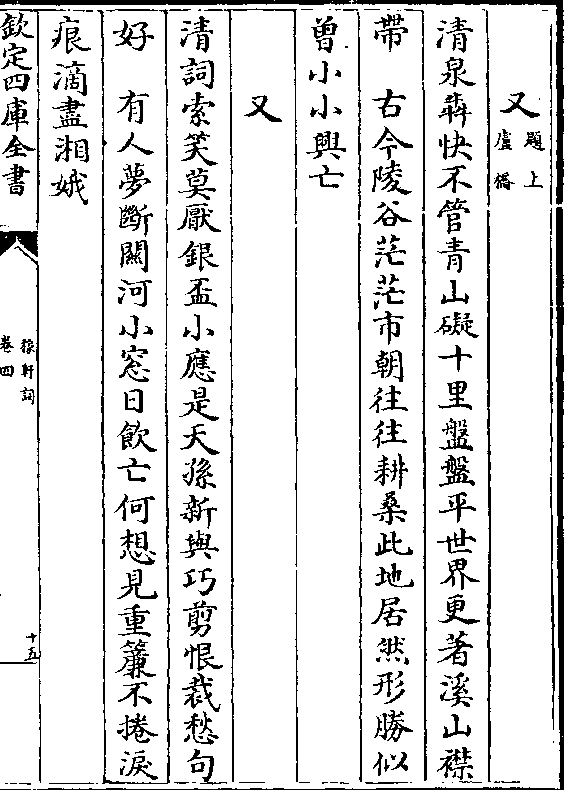 又 題上
盧橋
清泉犇快不管青山礙十里盤盤平世界更著溪山襟
帶　古今陵谷茫茫市朝往往耕桑此地居然形勝似
曾小小興亡
又
清詞索笑莫厭銀盃小應是天孫新與巧剪恨裁愁句
好　有人夢斷關河小窓日飲亡何想見重簾不捲淚
痕滴盡湘娥
欽定四庫全書
稼軒詞
卷四
十五